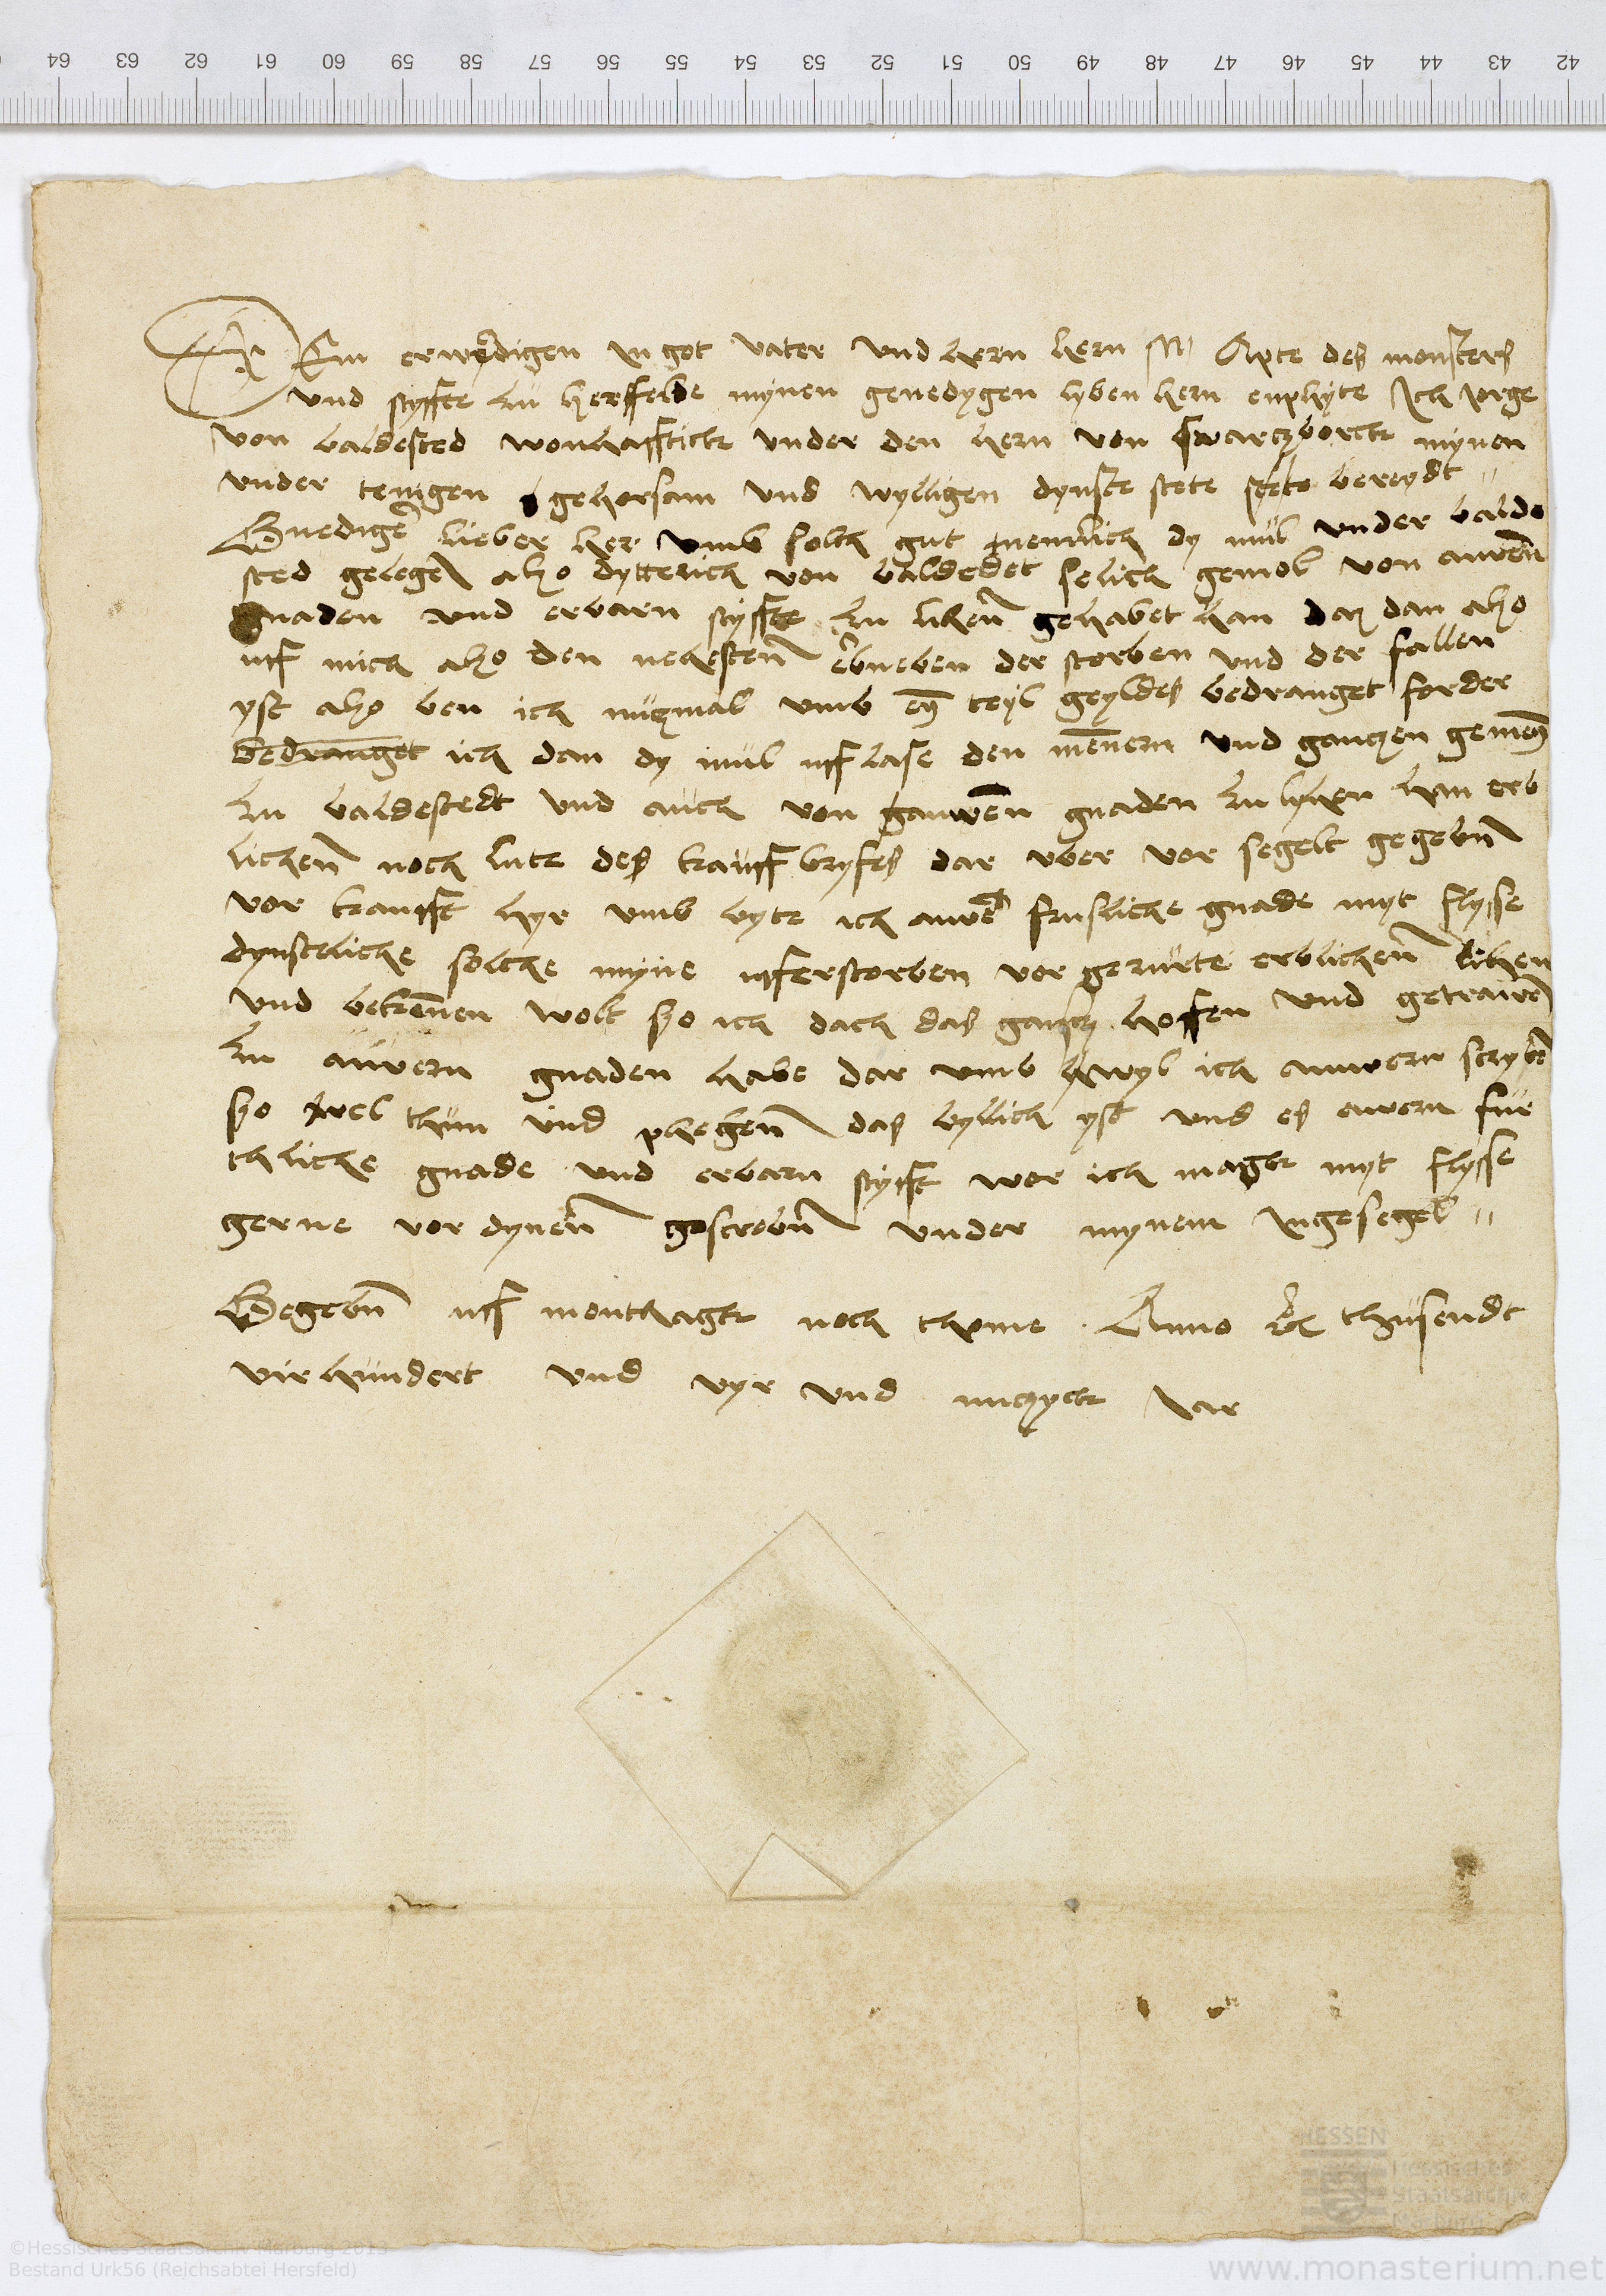 64 63 62 61 60 59 58 57 56 55 54 53 52 51 50 49 48 47 46 45 44 43 42
Dem erwerdigen in got vater und hern hern Apte des monsters
und styffte zu herffelde mynen genedygen lyben hern enphyte Ich Jorge
von baldested wonhafftick under den hern von swarczborck mynen
under tenigen gehorsam und wylligen dynste stete bereydt
Gnediger lieber her umb solch gut nemlich dy mul under balde
sted gelegen alzo dytterich von baldedet selich gemol von auwern
gnaden und erbarn styffte zu lihen gehabet han daz dan alzo
uff mich alzo den nehesten der storben und der fallen
yst alzo ben ich nuzmal umb eyn teyl geyldes bedranget forder
bedranget ich dan dy mul uff lase den mennern und ganczen gemeyn
zu baldestedt und auch von gauwern gnaden zu lyhen erb
lichenn noch lute des kauff bryfes dar uber vor segelt gegebnn
vor kaufft hyr umb byte ich auwer gnade myt flysse
dynstliche solche myne ufferstorben vor gerurte erblichenn lihen
und bekennen wolt szo ich dach das gantz hoffen und getrauwen
zu auwern gnaden habe dar umb ich auwern
szo wel thun und phegenn das byllich yst und es auwern fur
thliche gnade und erbarn styfft wor ich magk myt flysse
gerne vor dynenn gescrebnn under mynem Ingesegel
Gegebnn uff monthagk noch Anno thusendt
virhundert und vyr und nuczyck Jar
HESSEN
Hessisches
Staatsarchiv
Marburg
©Hessisches Staatsarchiv Marburg 2013
Bestand Urk56 (Reichsabtei Hersfeld)
www.monasterium.net